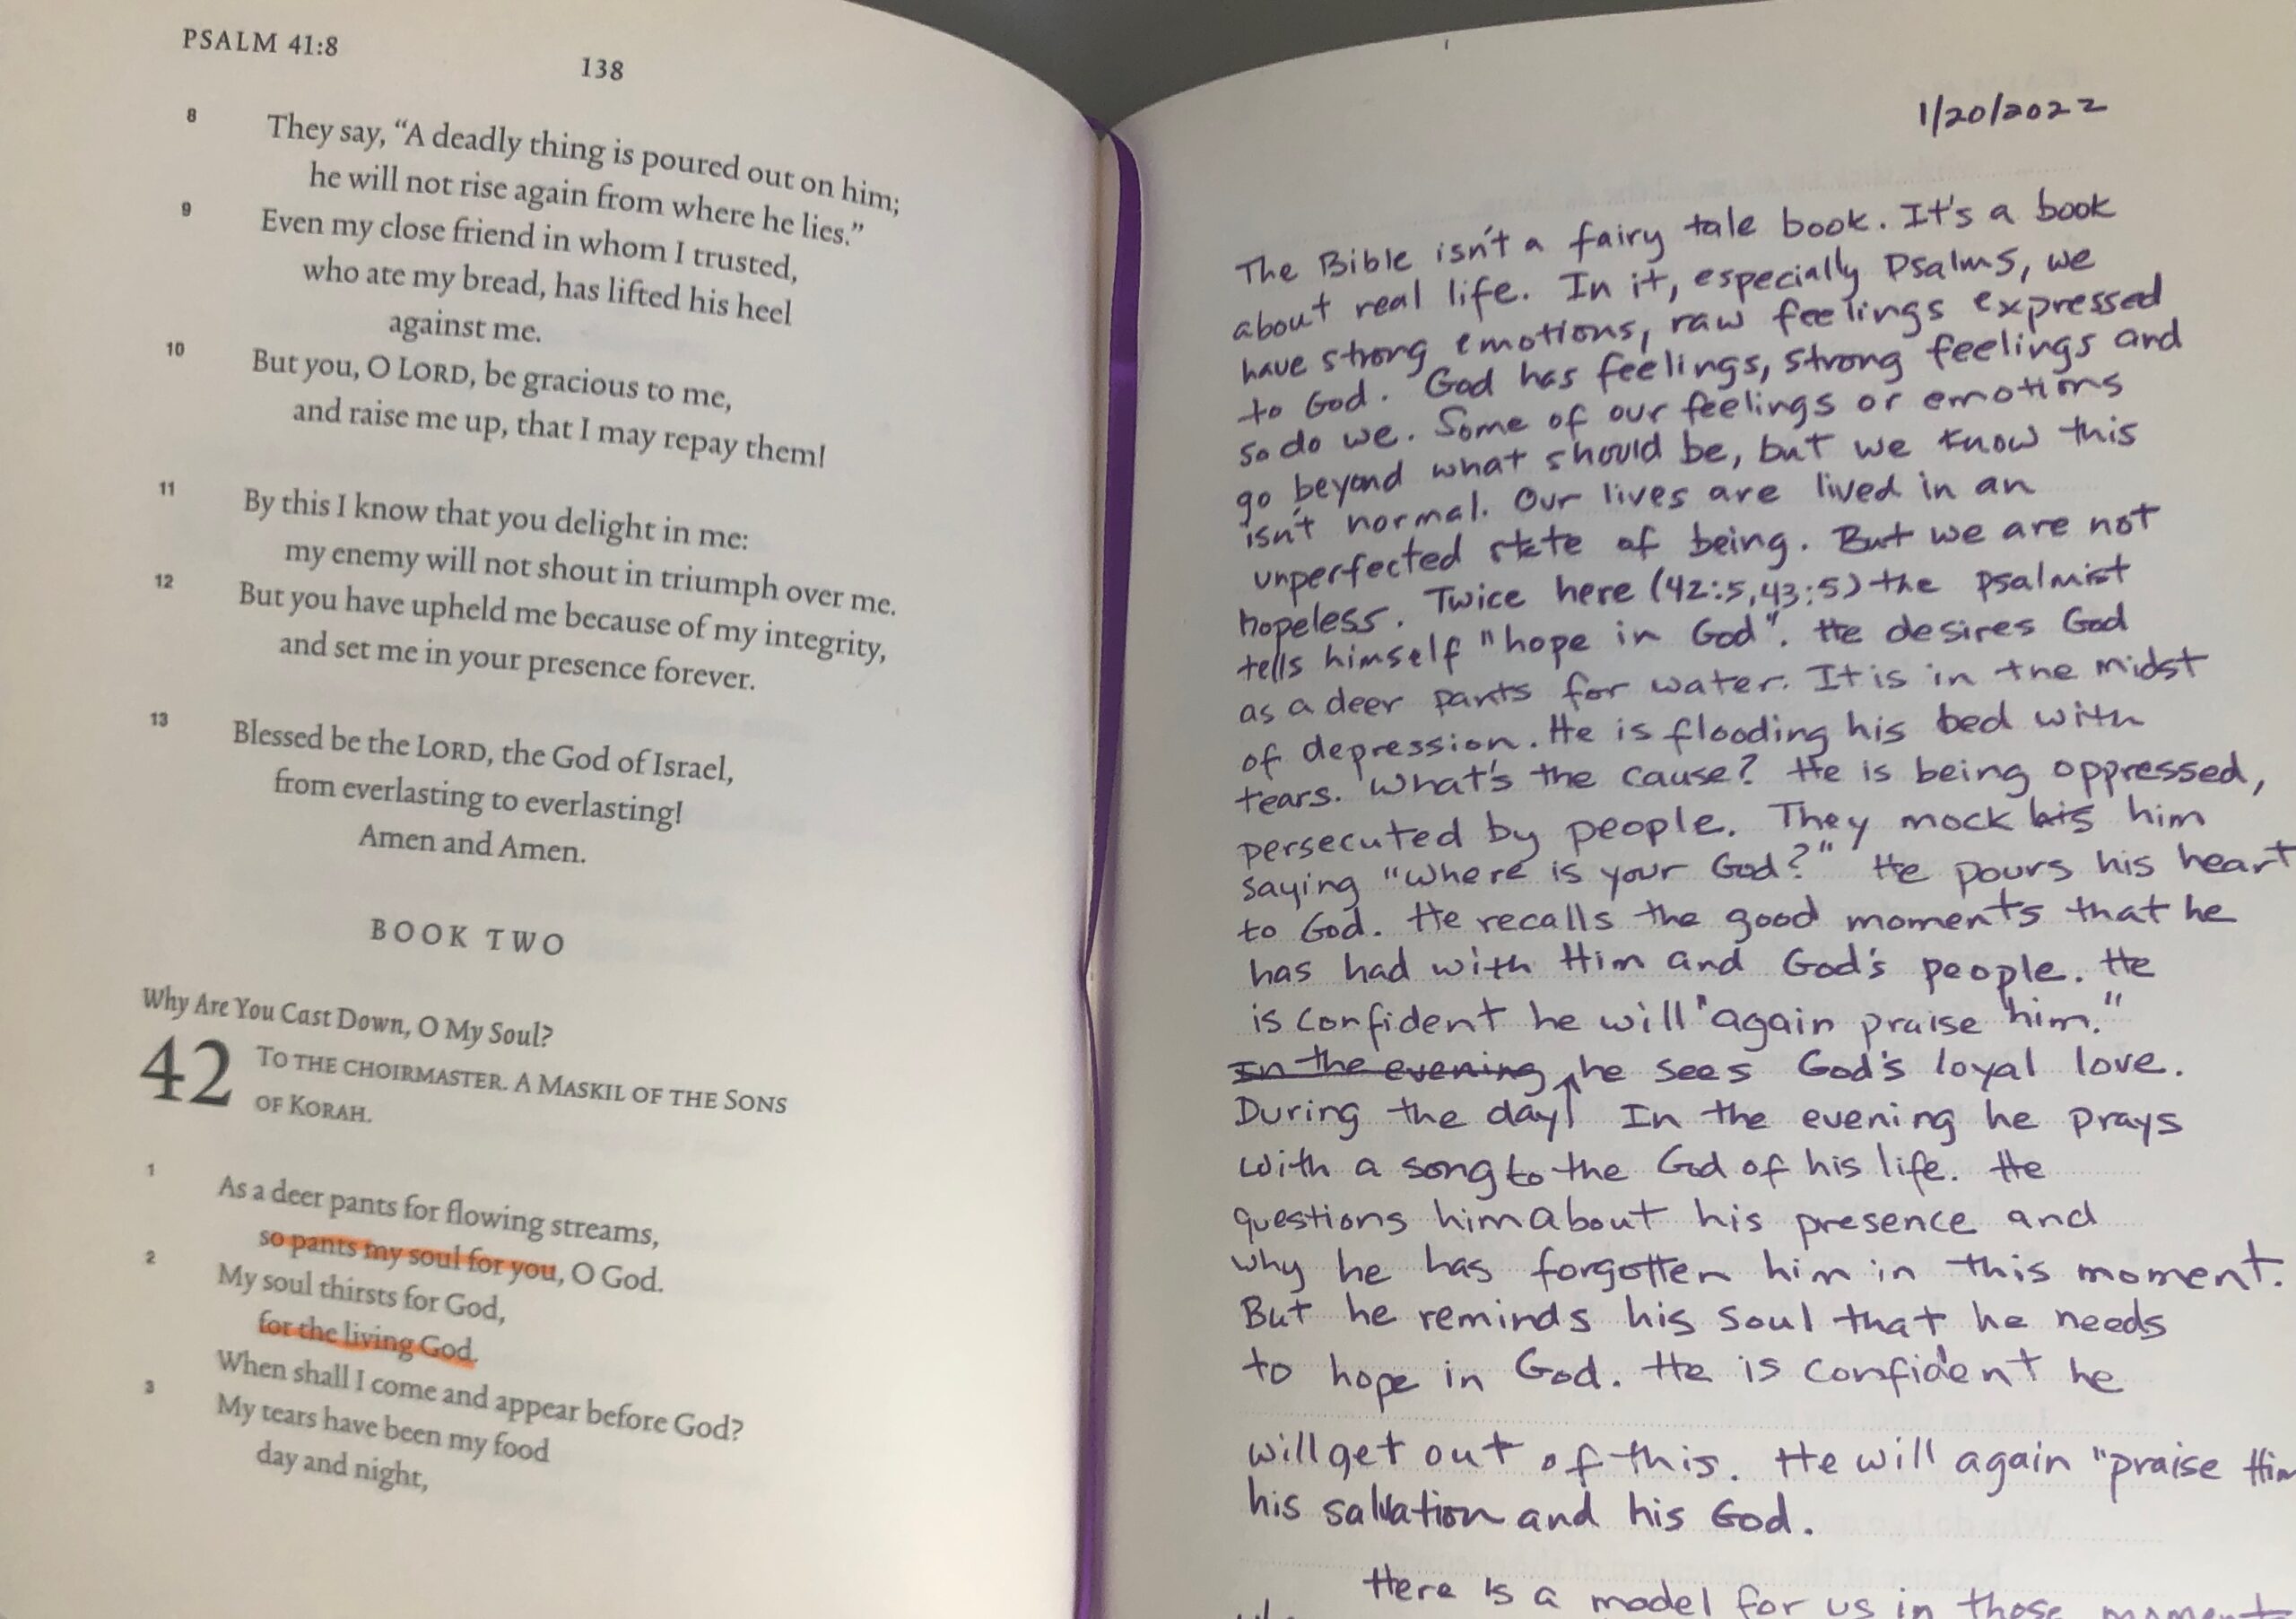 PSALM 41:8
138
8 They say, “A deadly thing is poured out on him;
he will not rise again from where he lies.”
9 Even my close friend in whom I trusted,
who ate my bread, has lifted his heel
against me.
10 But you, O LORD, be gracious to me,
and raise me up, that I may repay them!
11 By this I know that you delight in me:
my enemy will not shout in triumph over me.
12 But you have upheld me because of my integrity,
and set me in your presence forever.
13 Blessed be the LORD, the God of Israel,
from everlasting to everlasting!
Amen and Amen.
BOOK TWO
Why Are You Cast Down, O My Soul?
42 TO THE CHOIRMASTER. A MASKIL OF THE SONS
OF KORAH.
1 As a deer pants for flowing streams,
so pants my soul for you, O God.
2 My soul thirsts for God,
for the living God.
When shall I come and appear before God?
3 My tears have been my food
day and night,
1/20/2022
The Bible isn't a fairy tale book. It's a book
about real life. In it, especially Psalms, we
have strong emotions, raw feelings expressed
to God. God has feelings, strong feelings and
so do we. Some of our feelings or emotions
go beyond what should be, but we know this
isn't normal. Our lives are lived in an
unperfected state of being. But we are not
hopeless. Twice here (42:5,43:5) the psalmist
tells himself "hope in God". He desires God
as a deer pants for water. It is in the midst
of depression. He is flooding his bed with
tears. What's the cause? He is being oppressed,
persecuted by people. They mock his him
saying "Where is your God?" He pours his heart
to God. He recalls the good moments that he
has had with Him and God's people. He
is confident he will "again praise him."
In the evening he sees God's loyal love.
During the day In the evening he prays
with a song to the God of his life. He
questions him about his presence and
why he has forgotten him in this moment.
But he reminds his soul that he needs
to hope in God. He is confident he
will get out of this. He will again "praise Him
his salvation and his God.
Here is a model for us in those moment